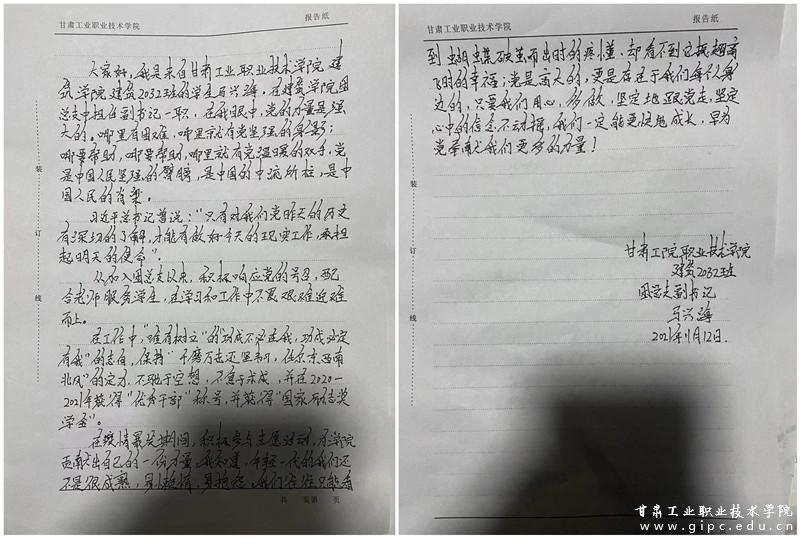 甘肃工业职业技术学院
报告纸
大家好,我是来自甘肃工业职业技术学院建
筑学院建筑2032班的学生马兴海,在建筑学院团
总支中担任副书记一职,在我眼中,党的力量是强
大的。哪里有困难,哪里就有党坚强的身影;
哪要帮助,哪要帮助,哪里就有党温暖的双手,党
是中国人民坚强的臂膀,是中国的中流砥柱,是中
国人民的脊梁。
习近平总书记曾说:"只有对我们党昨天的历史
有深切的了解,才能有做好今天的现实工作,承担
起明天的使命"。
从加入团总支以来,积极响应党的号召,配
合老师服务学生,在学习和工作中不畏艰难迎难
而上。
在工作中"唯有树立"的"功成不必在我,功成必定
有我"的志向,保持"千磨万击还坚韧,任尔东西南
北风"的定力,不驰于空想,不骛于求成,并在2020—
2021年获得"优秀干部"称号,并获得"国家励志奖
学金"。
在疫情最关期间,积极参与志愿活动,为学院
贡献出自己的一份力量。我知道,年轻一代的我们还
不是很成熟,易抱怨,我们往往只能看
共 页第 页
装
订
线
甘肃工业职业技术学院
报告纸
到蝴蝶破茧而出时的疼懂,却看不到它振翅高
飞时的幸福;党是高大的,更是存在于我们每个身
边的,只要我们用心,多做,坚定地跟党走,坚定
心中的信念不动摇,我们一定能更快地成长,早为
党奉献我们更多的力量!
装
订
线
甘肃工院职业技术学院
建筑2032班
团总支副书记
马兴海
2021年11月12日.
甘肃工业职业技术学院
www.gipc.edu.cn